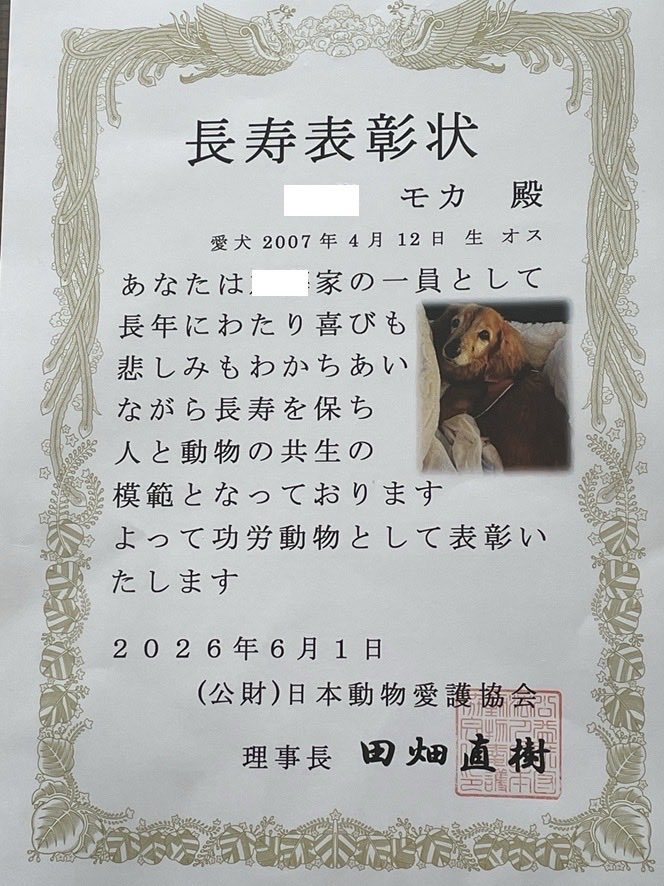 長寿表彰状
モカ 殿
愛犬 2007年4月12日 生 オス
あなたは 家の一員として
長年にわたり喜びも
悲しみもわかちあい
ながら長寿を保ち
人と動物の共生の
模範となっております
よって功労動物として表彰い
たします
2026年6月1日
(公財)日本動物愛護協会
理事長 田畑直樹